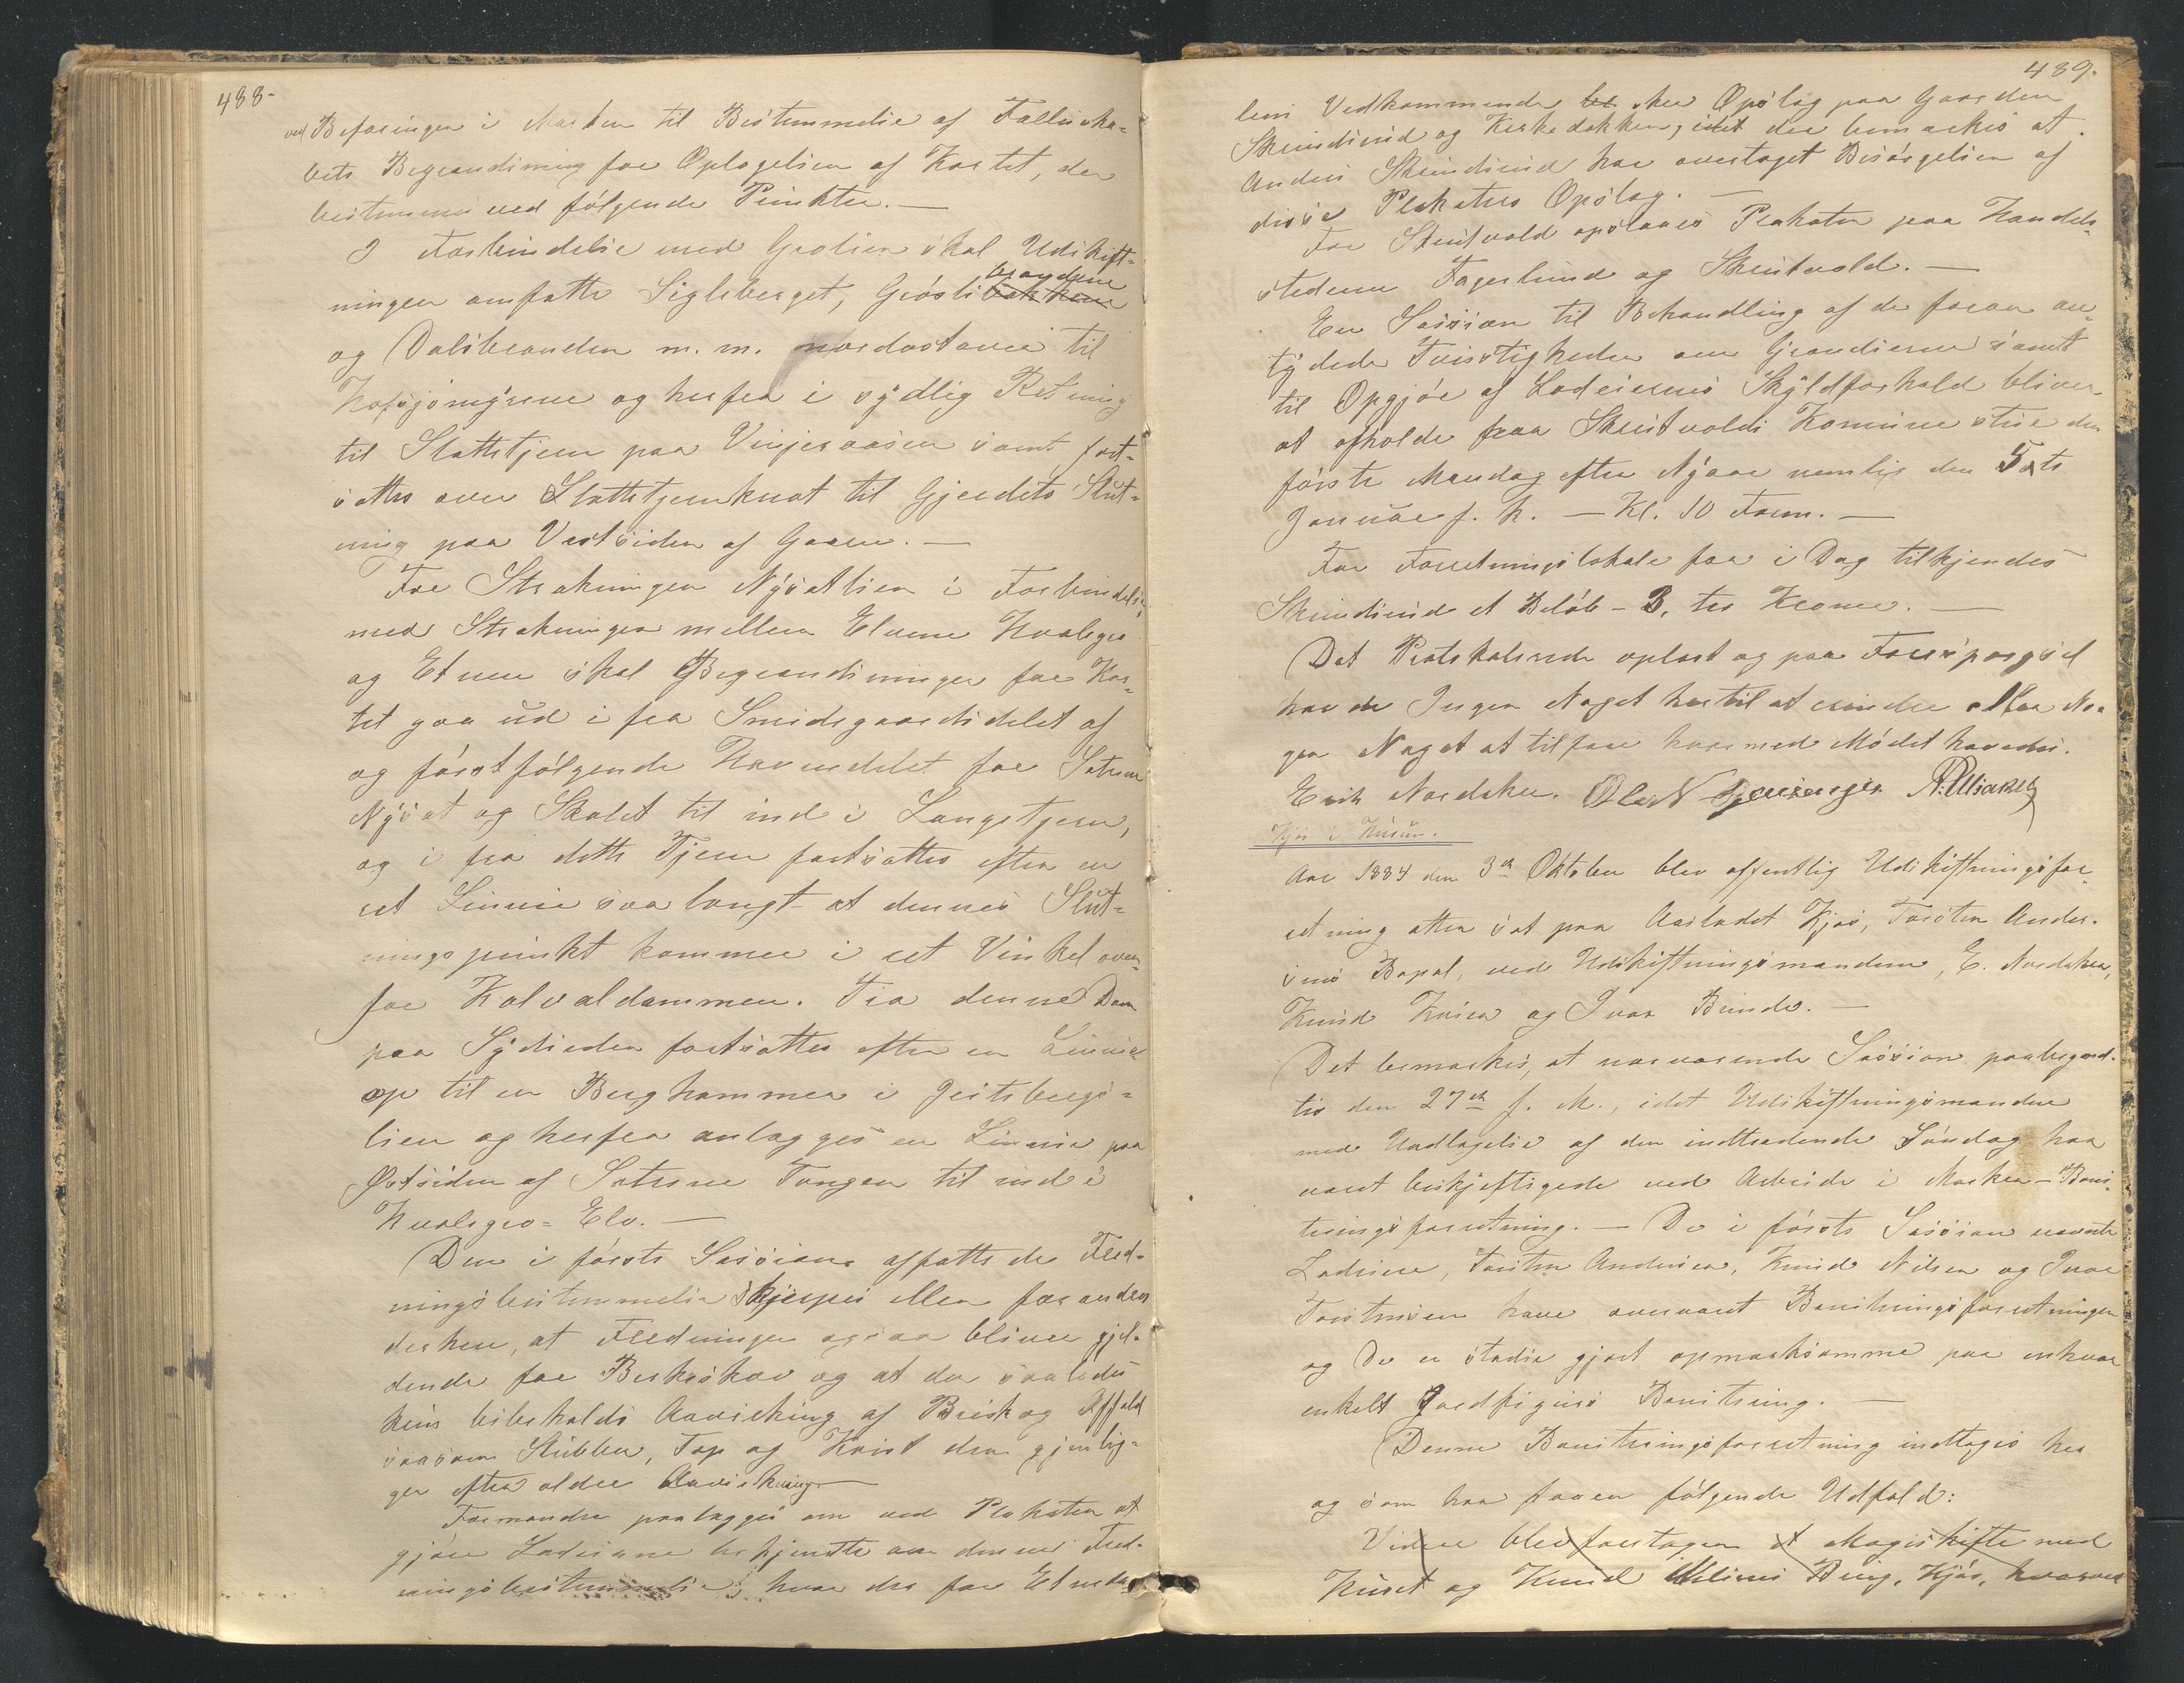 488-
ved Befaringen i Marken til Bestemmelse af Fællesska-
bets Begrændsning for Optagelsen af Kartet, der
bestemmes ved følgende Punkter. —
I Forbindelse med Grotien skal Udskift-
ningen omfatte Sigleberget, Grøslibrandene
og Dalsbranden m. m. nordostover til
Hafsjømyrene og herfra i sydlig Retning
til Slattetjern paa Vinjeraasen samt fort-
sættes over Slattetjernknat til Gjerdets Slut-
ning paa Vestsiden af Gaaren. —
For Strækningen Nysætlien i Forbindelse
med Strækningen mellem Elvene Hvalegro
og Etnen skal Begrændsningen for Kar-
tet gaa ud i fra Smidsgaardsdelet af
og først følgende Havnedelet for Sætrene
Nysæt og Skalet til ind i Langetjern,
og i fra dette Tjern fortsættes efter en
ret Linnie saa langt at dennes Slut-
ningspunkt kommer i ret Vinkel oven-
for Kalvaldammen. Fra denne Dam
paa Sydsiden fortsættes efter en Linnie
op til en Berghammer i Geitsbergs-
lien og herfra anlægges en Linnie paa
Østsiden af Sætrene Tongen til ind i
Hvalegro-Elv. —
Den i første Sessions affattede Fred-
ningsbestemmelse skjerpes eller forandres
derhen, at Fredningen ogsaa bliver gjæl-
dende for Birkeskov og at der saaledes
kuns bibeholdes Aavirking af Brisk og Affald
saasom Stubber, Top og Kvist den gjenlig-
ger efter ældre Aavirkning —
Formændre paalægges om ved Plakater at
gjøre Lodeierne bekjendte om dennes Fred-
ningsbestemmelse; hvor der for Etneda-
489.
lens Vedkommende sker Opslag paa Gaarden
Skrindsrud og Kirkebakken, idet der bemærkes at
Anders Skrindsrud har overtaget Besørgelsen af
disse Plakaters Opslag. —
For Skrutvold opslaaes Plakater paa Handels-
stederne Fagerlund og Skrutvold. —
En Session til Behandling af de foran an-
tydede Tvistigheder om Grændserne samt
til Opgjør af Lodeiernes Skyldforhold bliver
at afholde paa Skrutvolds Komunestue den
første Mandag efter Nyaar nemlig den 5te
Januar f. A. — Kl. 10 Form. —
For Forretningslokale for i Dag tilkjendes
Skrindsrud et Beløb — 3, tre Kroner. —
Det Protokolerede oplæst og paa Forespørgsel
havde Ingen Noget hertil at erindre eller No-
gen Noget at tilføre hvormed Mødet hævedes.
Erik Nordaker. Ole N
Kjøs i Hurum.
Aar 1884 den 3de Oktober blev offentlig Udskiftningsfor-
retning atter sat paa Aarladet Kjøs, Torsten Anders-
sens Bopæl, ved Udskiftningsmændene, E. Nordaker,
Knud Kvien og Ivar Bunde. —
Det bemærkes, at nærværende Session paabegynd-
tes den 27de f. M., idet Udskiftningsmændene
med Undtagelse af den indtrædende Søndag har
været beskjæftigede ved Arbeide i Marken — Boni-
teringsforretning. — De i første Session nævnte
Lodeiere, Torsten Andersen, Knud Nilsen og Ivar
Torstensen have overværet Boniteringsforretningen
og De er stadie gjort opmærksomme paa enhver
enkelt Jordfiguers Bonitering. —
Denne Boniteringsforretning indtages her
og som har faaen følgende Udfald:
Videre blev foretagen et Magiskifte med
Huset og Knud Nilsens Brug, Kjøs, hvorved